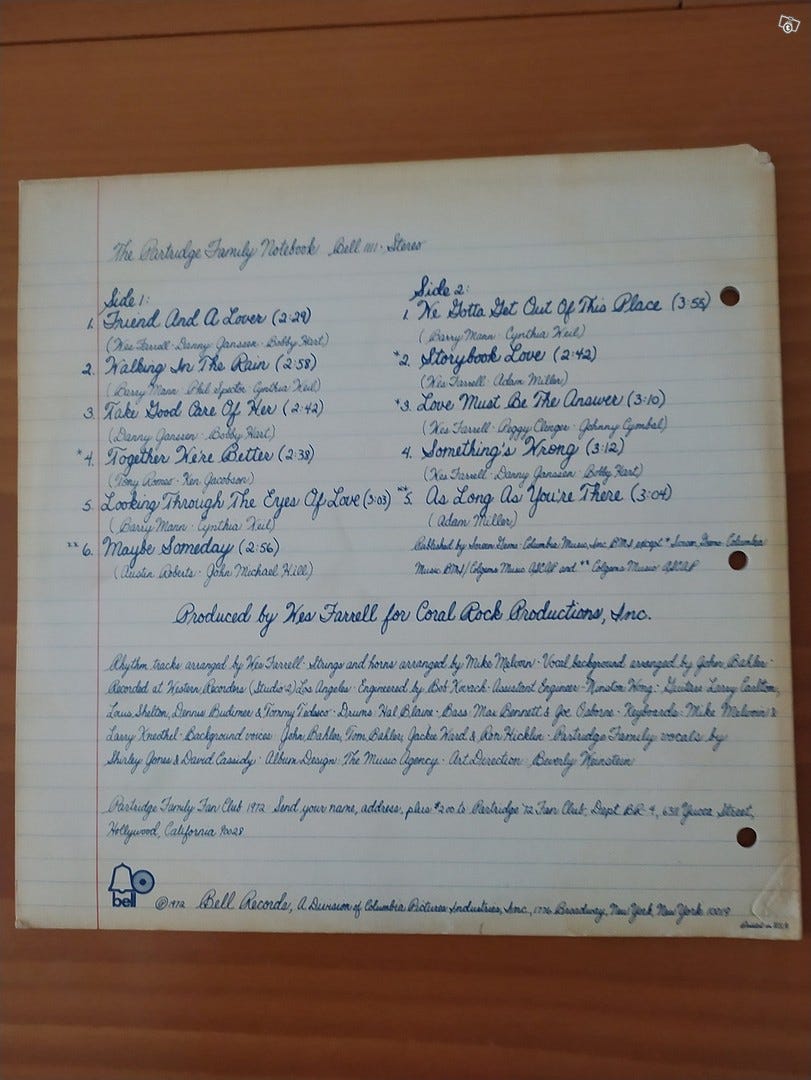 The Partridge Family Notebook Bell 1111 · Stereo
Side 1:
1. Friend And A Lover (2:29)
(Wes Farrell · Danny Janssen · Bobby Hart)
2. Walking In The Rain (2:58)
(Barry Mann · Phil Spector · Cynthia Weil)
3. Take Good Care Of Her (2:42)
(Danny Janssen · Bobby Hart)
*4. Together We're Better (2:38)
(Tony Romeo · Ken Jacobson)
5. Looking Through The Eyes Of Love (3:03)
(Barry Mann · Cynthia Weil)
**6. Maybe Someday (2:56)
(Austin Roberts · John Michael Hill)
Side 2:
1. We Gotta Get Out Of This Place (3:55)
(Barry Mann · Cynthia Weil)
*2. Storybook Love (2:42)
(Wes Farrell · Adam Miller)
*3. Love Must Be The Answer (3:10)
(Wes Farrell · Peggy Clinger · Johnny Cymbal)
4. Something's Wrong (3:12)
(Wes Farrell · Danny Janssen · Bobby Hart)
**5. As Long As You're There (3:04)
(Adam Miller)
Published by Screen Gems-Columbia Music, Inc. BMI, except * Screen Gems-Columbia
Music BMI/Colgems Music ASCAP and ** Colgems Music ASCAP
Produced by Wes Farrell for Coral Rock Productions, Inc.
Rhythm tracks arranged by Wes Farrell · Strings and horns arranged by Mike Melvoin · Vocal background arranged by John Bahler ·
Recorded at Western Recorders (Studio 2) Los Angeles · Engineered by Bob Kovach · Assistant Engineer · Winston Wong · Guitars Larry Carlton,
Louis Shelton, Dennis Budimer & Tommy Tedesco · Drums: Hal Blaine · Bass: Max Bennett & Joe Osborne · Keyboards: Mike Melvoin &
Larry Knechtel · Background voices: John Bahler, Tom Bahler, Jackie Ward & Ron Hicklin · Partridge Family vocals by
Shirley Jones & David Cassidy · Album Design: The Music Agency · Art Direction: Beverly Weinstein
Partridge Family Fan Club 1972 Send your name, address, plus $2.00 to Partridge '72 Fan Club, Dept. BR 4, 6311 Yucca Street,
Hollywood, California 90028
bell
©1972 Bell Records, A Division of Columbia Pictures Industries, Inc., 1776 Broadway, New York, New York 10019
Printed in U.S.A.